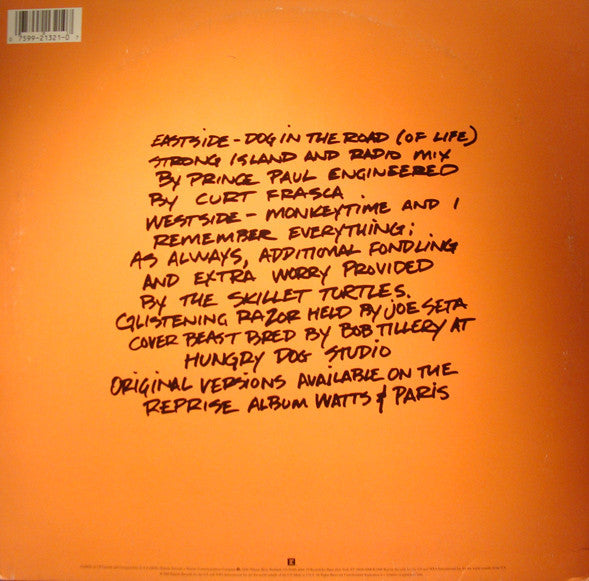 0 7599-21321-0 7
EASTSIDE - DOG IN THE ROAD (OF LIFE)
STRONG ISLAND AND RADIO MIX
BY PRINCE PAUL ENGINEERED
BY CURT FRASCA.
WESTSIDE - MONKEYTIME AND I
REMEMBER EVERYTHING;
AS ALWAYS, ADDITIONAL FONDLING
AND EXTRA WORRY PROVIDED
BY THE SKILLET TURTLES.
GLISTENING RAZOR HELD BY JOE SETA
COVER BEAST BRED BY BOB TILLERY AT
HUNGRY DOG STUDIO
ORIGINAL VERSIONS AVAILABLE ON THE
REPRISE ALBUM WATTS & PARIS